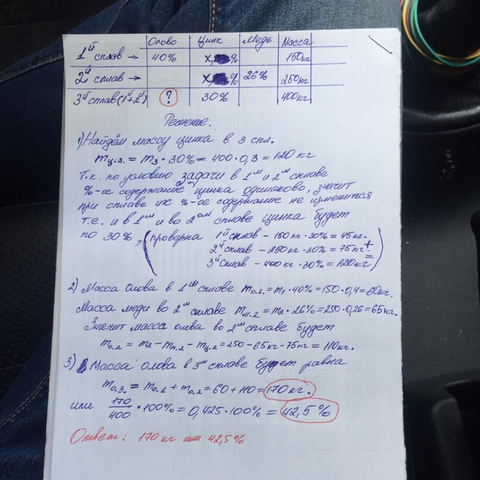 Олово Цинк Медь Масса
1й сплав → 40% x% 150кг
2й сплав → x% 26% 250кг
3й сплав (1й+2й) ? 30% 400кг
Решение.
1) Найдём массу цинка в 3 спл.
mц.3. = m3 · 30% = 400 · 0,3 = 120 кг
Т.к. по условию задачи в 1ом и 2ом сплаве
%-ое содержание цинка одинаково, значит
при сплаве их %-ое содержание не изменится
т.е. и в 1ом и во 2ом сплаве цинка будет
по 30%, (проверка 1й сплав - 150кг · 30% = 45кг.
2й сплав - 250кг · 30% = 75кг. +
3й сплав - 400кг · 30% = 120кг) =
2) Масса олова в 1ом сплаве mо.1. = m1 · 40% = 150 · 0,4 = 60кг.
Масса меди во 2ом сплаве mм.2. = m2 · 26% = 250 · 0,26 = 65кг.
Значит масса олова во 2ом сплаве будет
mо.2. = m2 - mм.2. - mц.2. = 250 - 65кг - 75кг = 110кг.
3) Масса олова в 3ем сплаве будет равна
mо.3. = mо.1. + mо.2. = 60 + 110 = 170 кг.
или 170/400 · 100% = 0,425 · 100% = 42,5%
Ответ: 170 кг или 42,5%